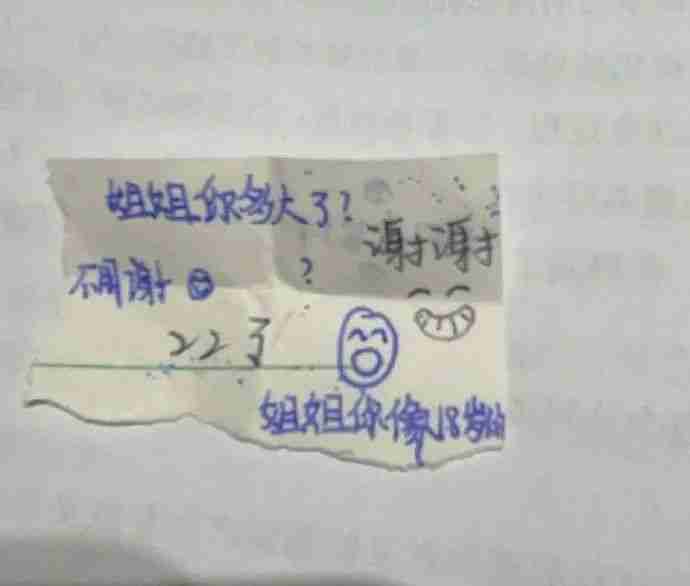 姐姐你多大了?
谢谢
不用谢
?
22了
姐姐你像18岁的